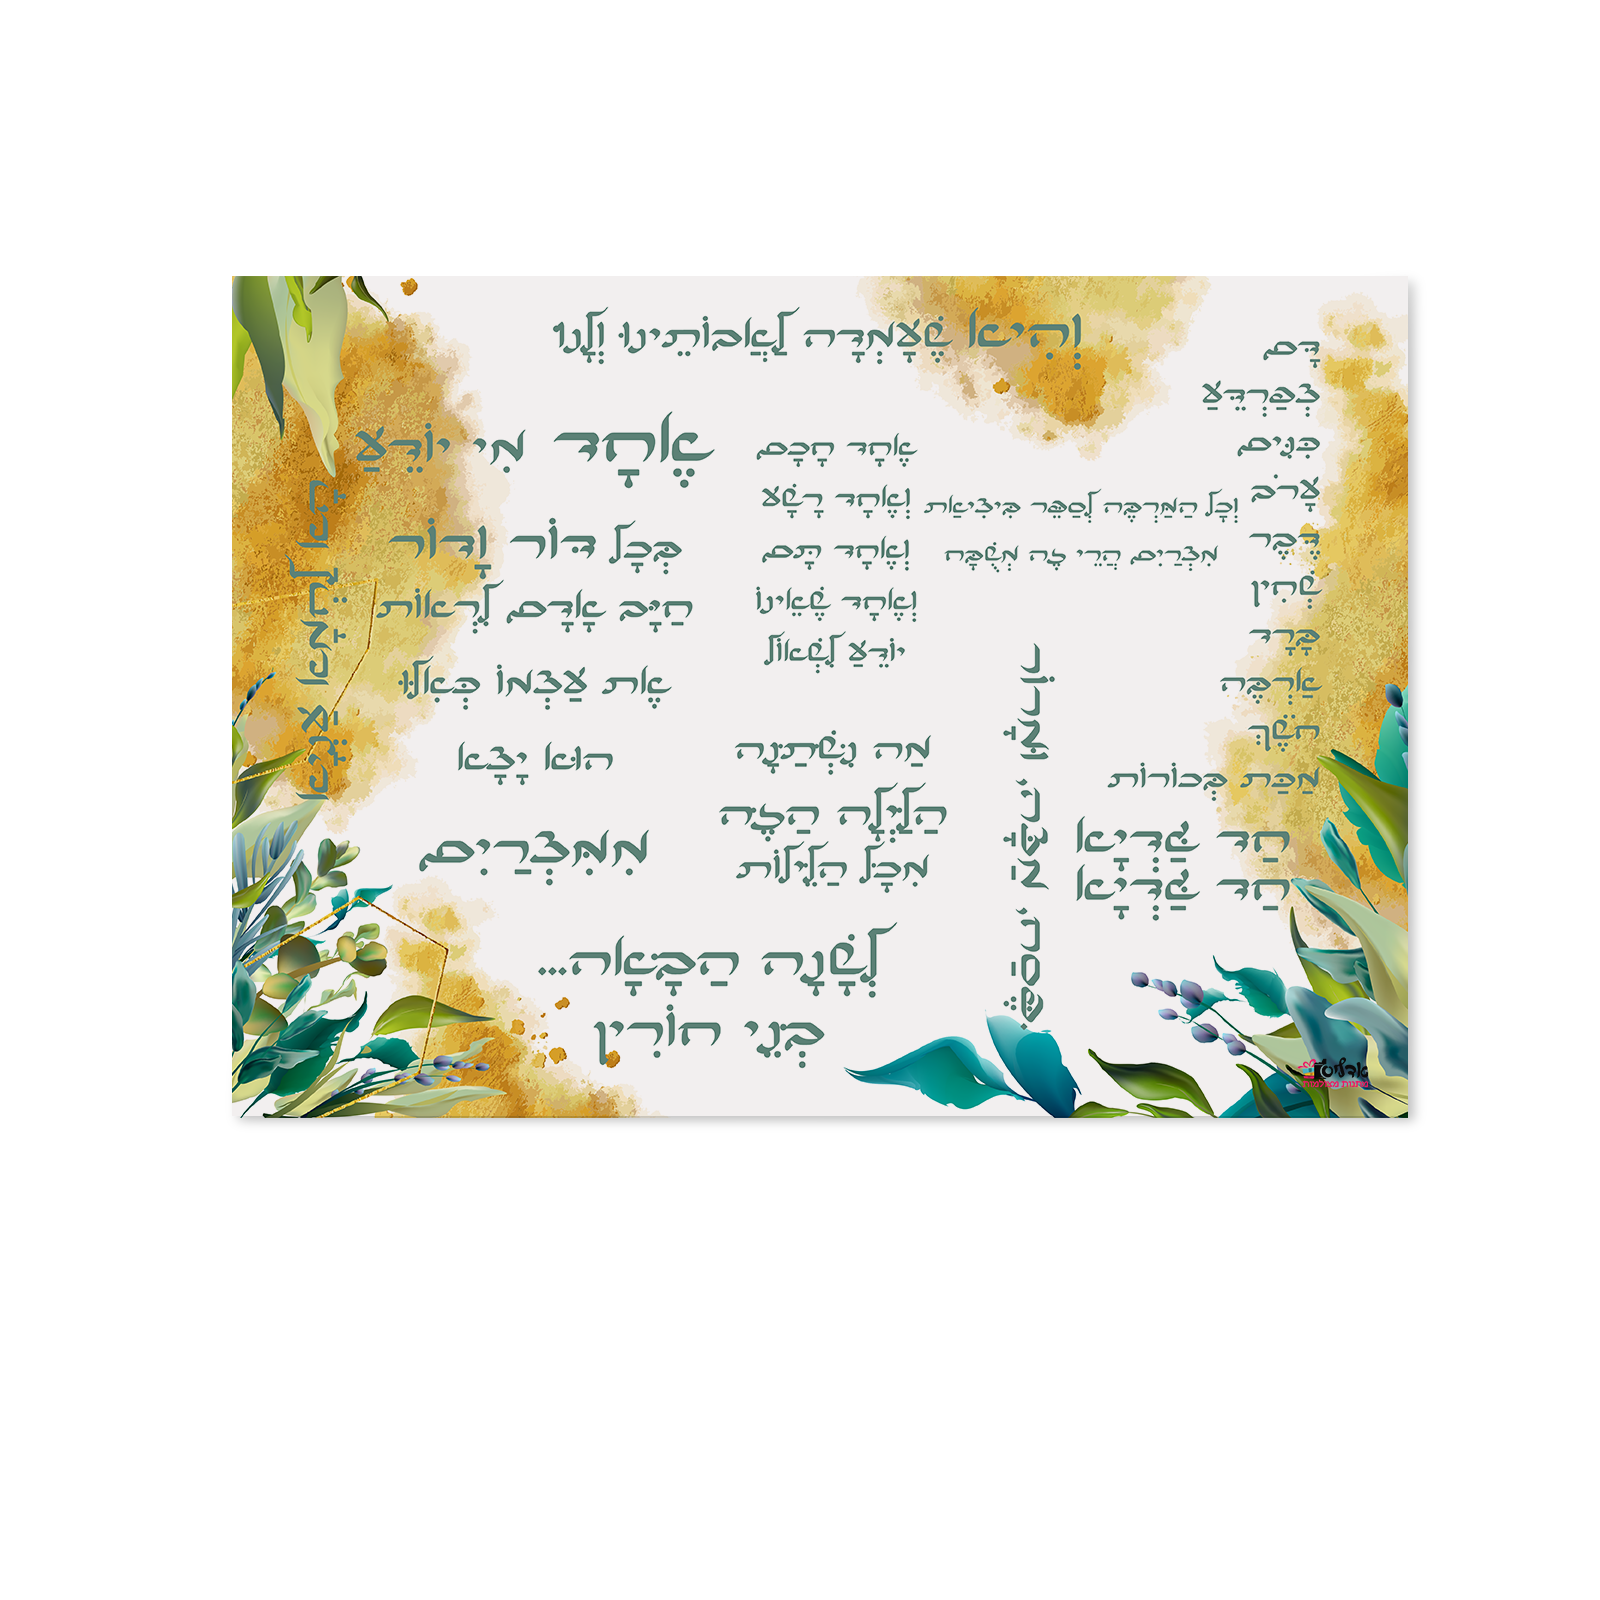 וְהִיא שֶׁעָמְדָה לַאֲבוֹתֵינוּ וְלָנוּ
דָּם
צְפַרְדֵּעַ
כִּנִּים
עָרֹב
דֶּבֶר
שְׁחִין
בָּרָד
אַרְבֶּה
חֹשֶׁךְ
מַכַּת בְּכוֹרוֹת
וְכָל הַמַּרְבֶּה לְסַפֵּר בִּיצִיאַת
מִצְרַיִם הֲרֵי זֶה מְשֻׁבָּח
אֶחָד חָכָם
וְאֶחָד רָשָׁע
וְאֶחָד תָּם
וְאֶחָד שֶׁאֵינוֹ
יוֹדֵעַ לִשְׁאוֹל
אֶחָד מִי יוֹדֵעַ
בְּכָל דּוֹר וָדוֹר
חַיָּב אָדָם לִרְאוֹת
אֶת עַצְמוֹ כְּאִלּוּ
הוּא יָצָא
מִמִּצְרַיִם
מַה נִּשְׁתַּנָּה
הַלַּיְלָה הַזֶּה
מִכָּל הַלֵּילוֹת
פֶּסַח, מַצָּה, וּמָרוֹר
חַד גַּדְיָא
חַד גַּדְיָא
לְשָׁנָה הַבָּאָה...
בְּנֵי חוֹרִין